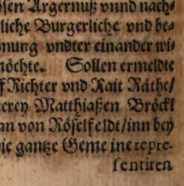 sen Ärgernuß vnnd nach-
liche Burgerliche vnd be-
nung vndter einander wi-
möchte. Sollen ermeldte
ff Richter vnd Rait Räthe/
erey Matthiaßen Bröckl
an von Röselfeldt/inn bey
ie gantze Gemeine repre-
sentiren